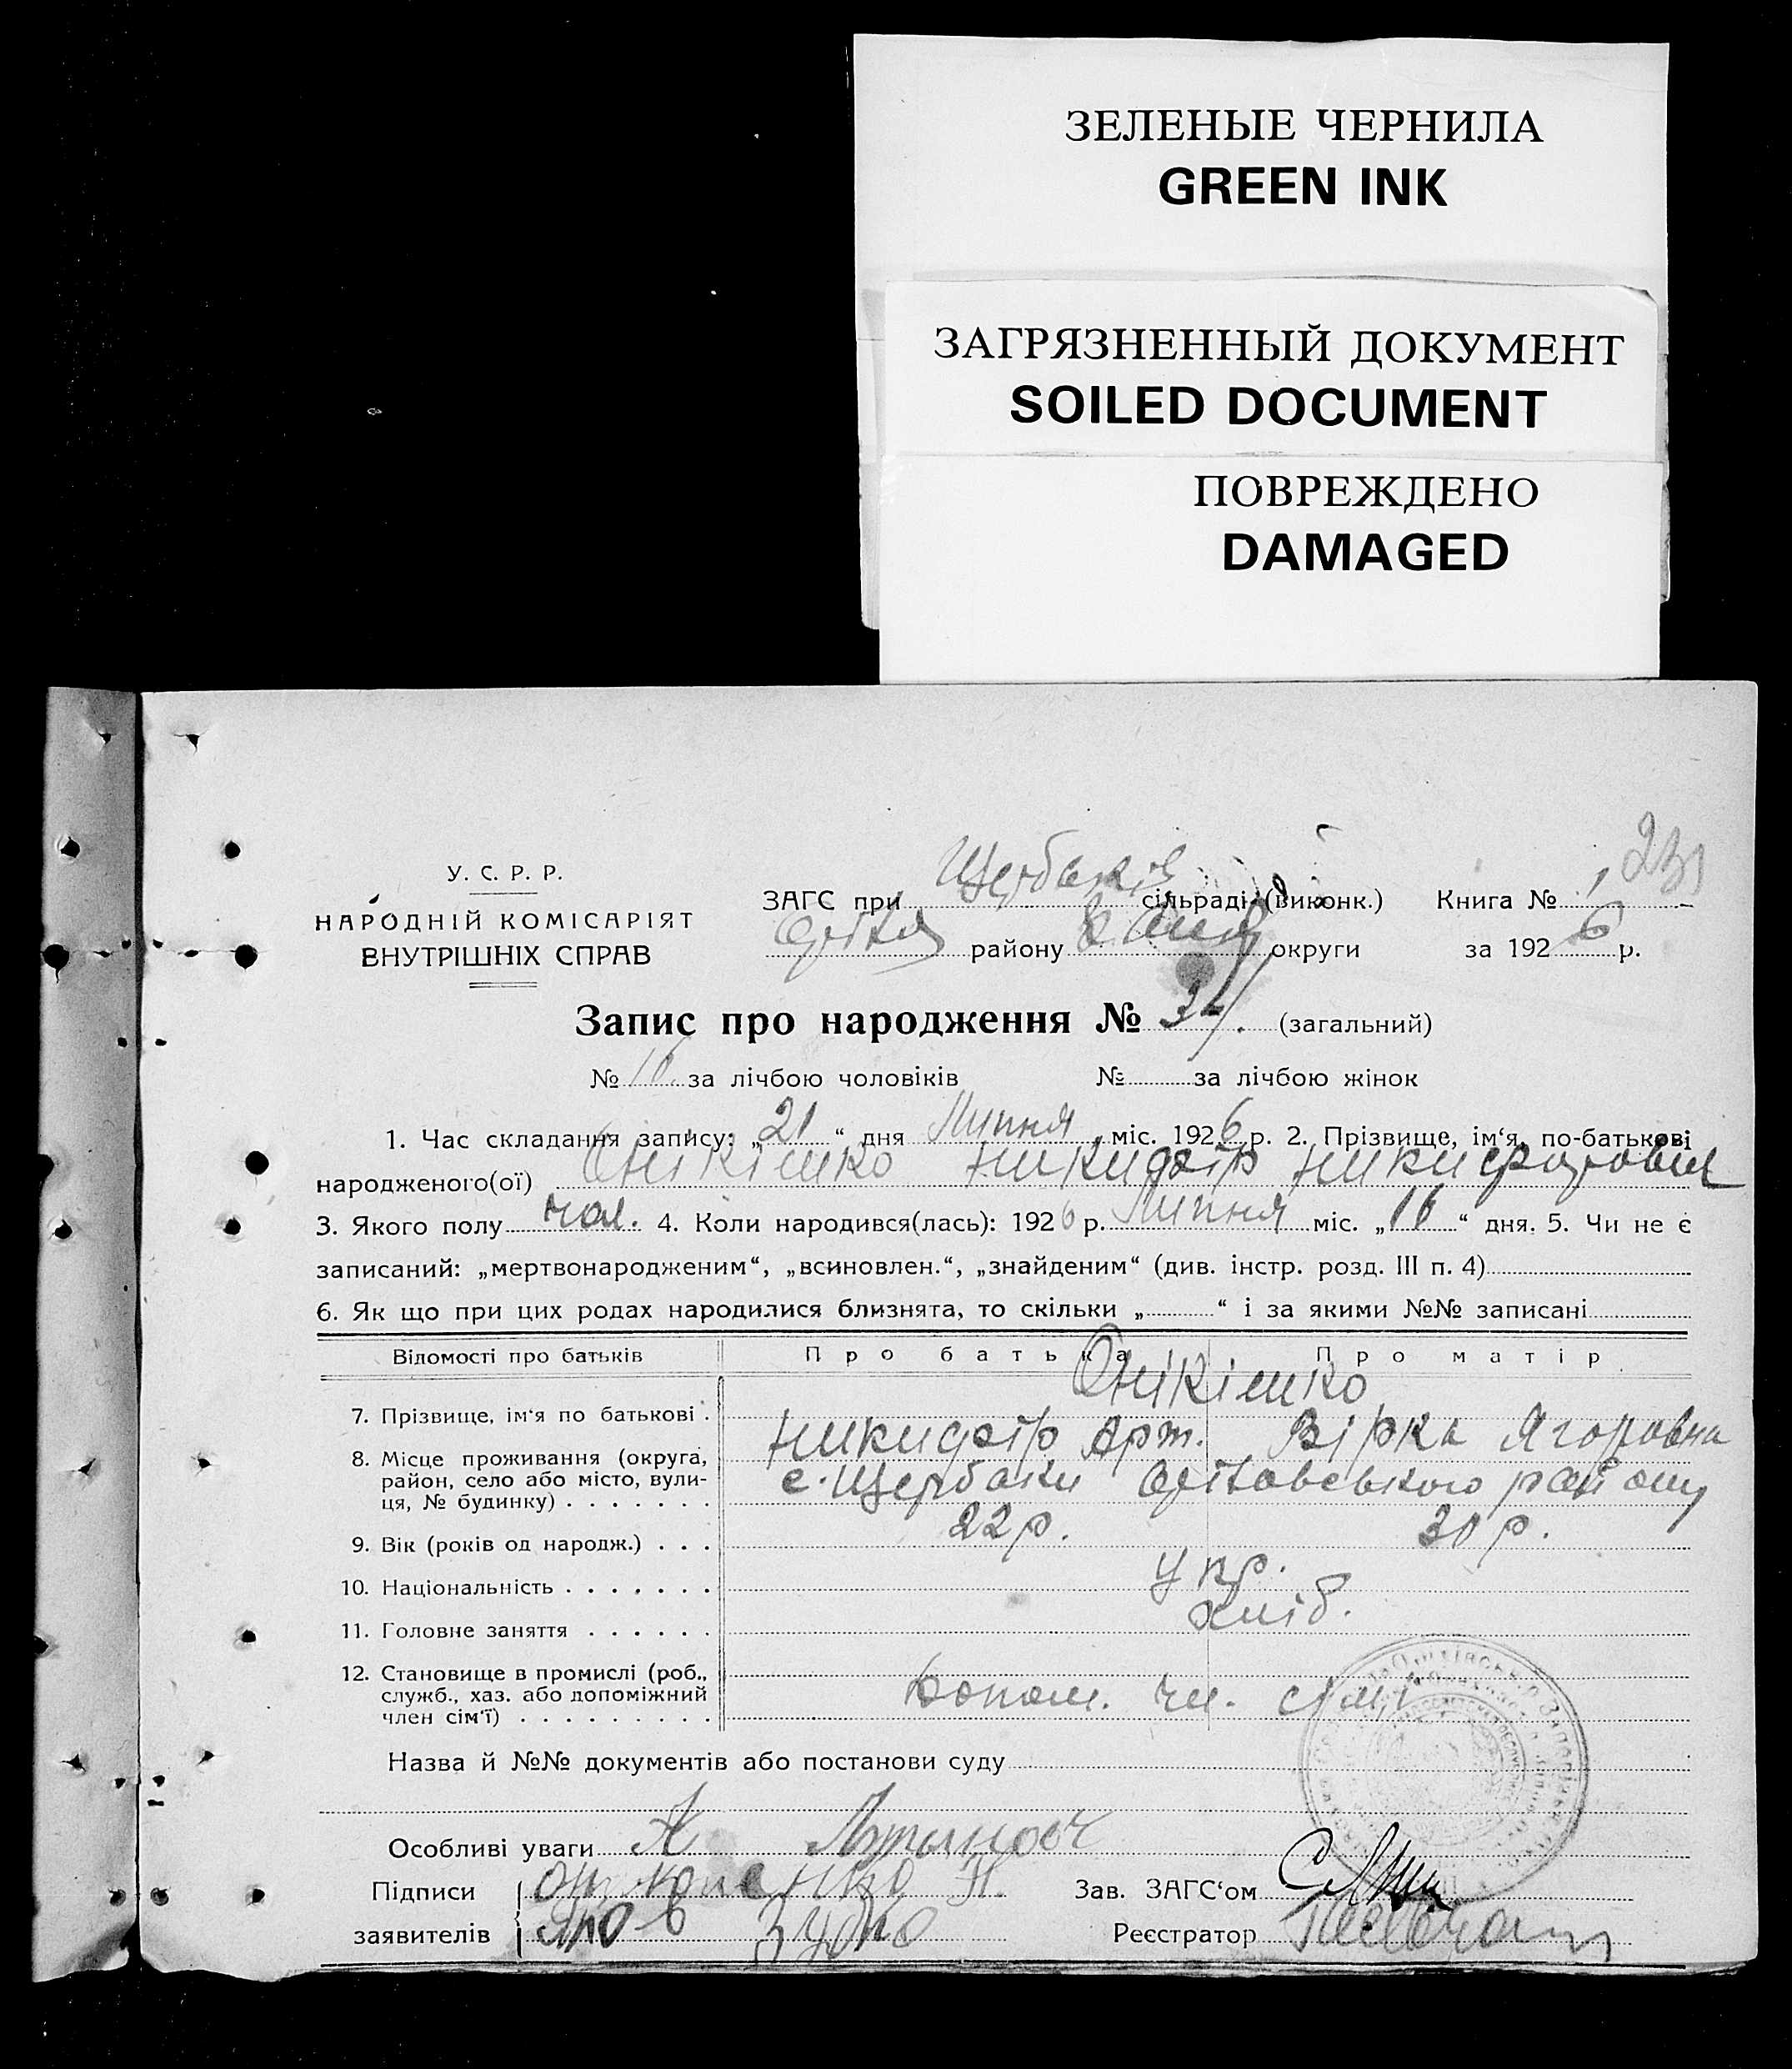 ЗЕЛЕНЫЕ ЧЕРНИЛА
GREEN INK
ЗАГРЯЗНЕННЫЙ ДОКУМЕНТ
SOILED DOCUMENT
ПОВРЕЖДЕНО
DAMAGED
231
У. С. Р. Р.
НАРОДНІЙ КОМІСАРІЯТ
ВНУТРІШНІХ СПРАВ
ЗАГС при сільраді (виконк.) Книга № 1
району округи за 1926 р.
Запис про народження № 34. (загальний)
№ 16 за лічбою чоловіків № за лічбою жінок
1. Час складання запису: „21“ дня Липня міс. 1926 р. 2. Прізвище, ім‘я, по-батькові
народженого(ої) Онікієнко
3. Якого полу чол. 4. Коли народився(лась): 1926 р. Липня міс. „16“ дня. 5. Чи не є
записаний: „мертвонародженим“, „всиновлен.“, „знайденим“ (див. інстр. розд. III п. 4)
6. Як що при цих родах народилися близнята, то скільки „ “ і за якими №№ записані
Відомості про батьків Про батька Про матір
Онікієнко
7. Прізвище, ім‘я по батькові . Арт. Вірка Ягоровна
8. Місце проживання (округа, район, село або місто, вулиця, № будинку) . . . . . . . с. Щербаки району
9. Вік (років од народж.) . . . 22 р. 30 р.
10. Національність . . . . . . . укр.
11. Головне заняття . . . . . . хліб.
12. Становище в промислі (роб., служб., хаз. або допоміжний член сім‘ї) . . . . . . . . . Допом. чл. сімї
Назва й №№ документів або постанови суду
Особливі уваги
Підписи Зав. ЗАГС‘ом
заявителів Яков Зубко Реєстратор